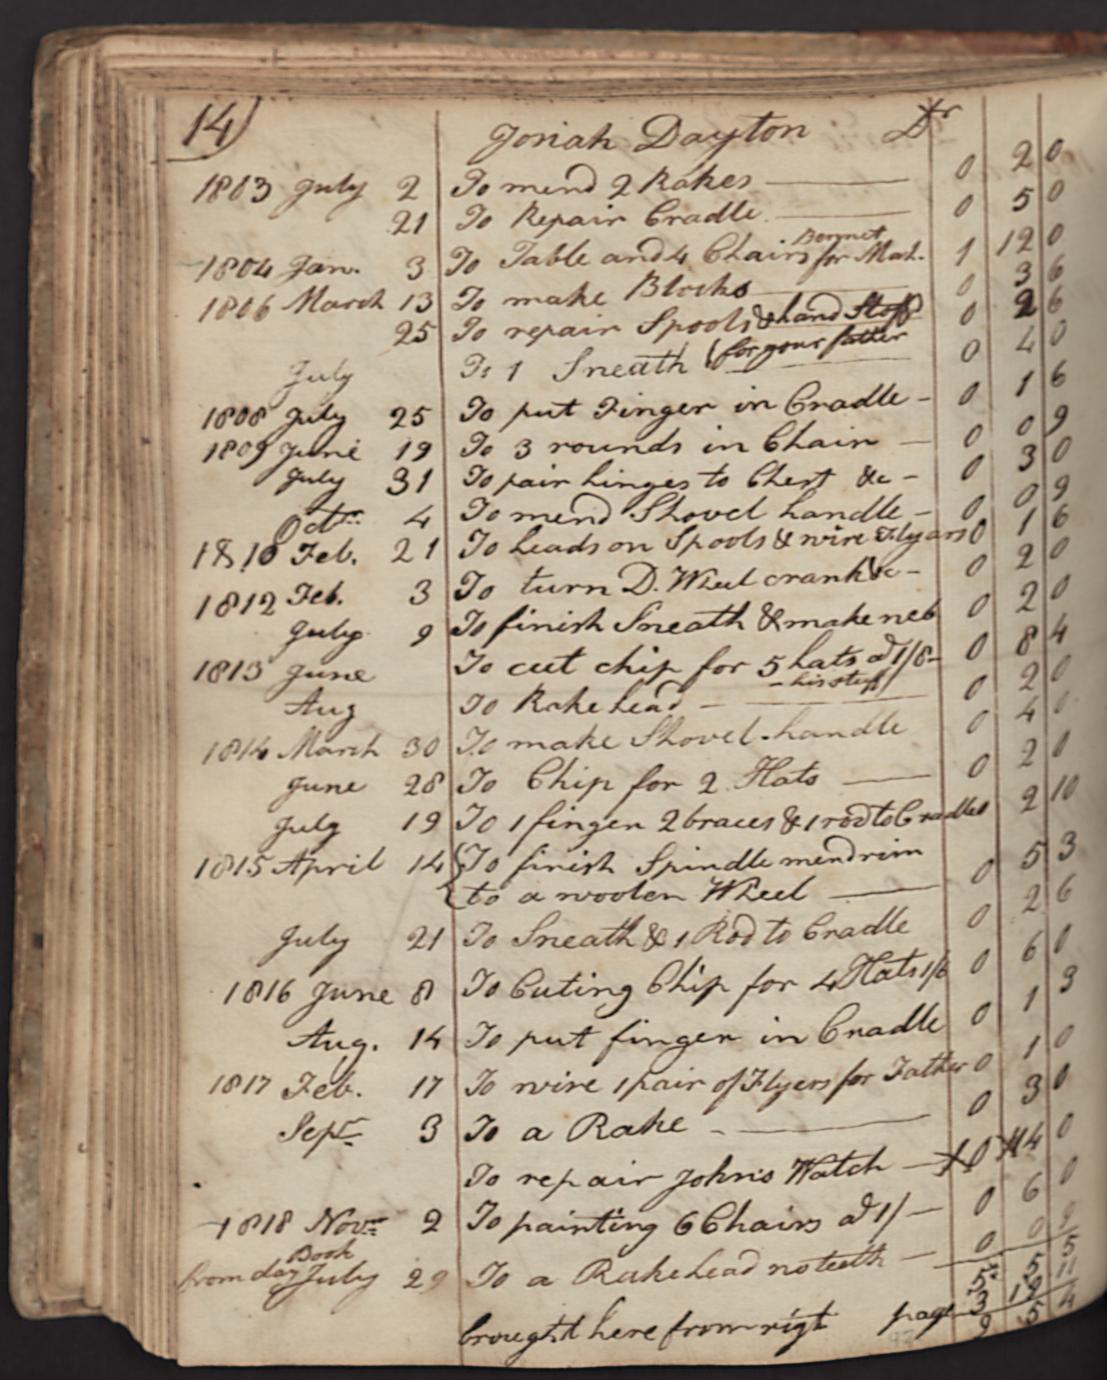 14)
Josiah Dayton Dr
1803 July 2 To mend 2 Rakes 0 2 0
21 To Repair Cradle 0 5 0
1804 Jan. 3 To Table and 4 Chairs for Mah. 1 12 0
Bonnet
1806 March 13 To make Blocks 0 3 6
25 To repair Spools & hand Staff 0 2 6
July To 1 Sneath (for your father 0 4 0
1808 July 25 To put Finger in Cradle 0 1 6
1809 June 19 To 3 rounds in Chair 0 0 9
July 31 To pair hinges to Chest &c 0 3 0
Octr. 4 To mend Shovel handle 0 0 9
1810 Feb. 21 To heads on Spools & wire Flyars 0 1 6
1812 Feb. 3 To turn D. Wheel crank &c 0 2 0
July 9 To finish Sneath & make neb 0 2 0
1813 June To cut chip for 5 hats at 1/8 0 8 4
his stuff
Aug To Rake head 0 2 0
1814 March 30 To make Shovel handle 0 4 0
June 28 To Chip for 2 Hats 0 2 0
July 19 To 1 finger 2 braces & 1 rod to Cradles 2 10
1815 April 14 { To finish Spindle mend rim
to a woolen Wheel 0 5 3
July 21 To Sneath & 1 Rod to Cradle 0 2 6
1816 June 8 To Cuting Chip for 4 Hats 1/6 0 6 0
Aug. 14 To put finger in Cradle 0 1 3
1817 Feb. 17 To wire 1 pair of Flyers for Father 0 1 0
Sepr. 3 To a Rake 0 3 0
To repair Johns Watch 0 4 0
1818 Novr. 2 To painting 6 Chairs at 1/ 0 6 0
Book
from day July 29 To a Rake head no teeth 0 0 9
5 5 5
brought here from rigt page 3 19 11
9 5 4